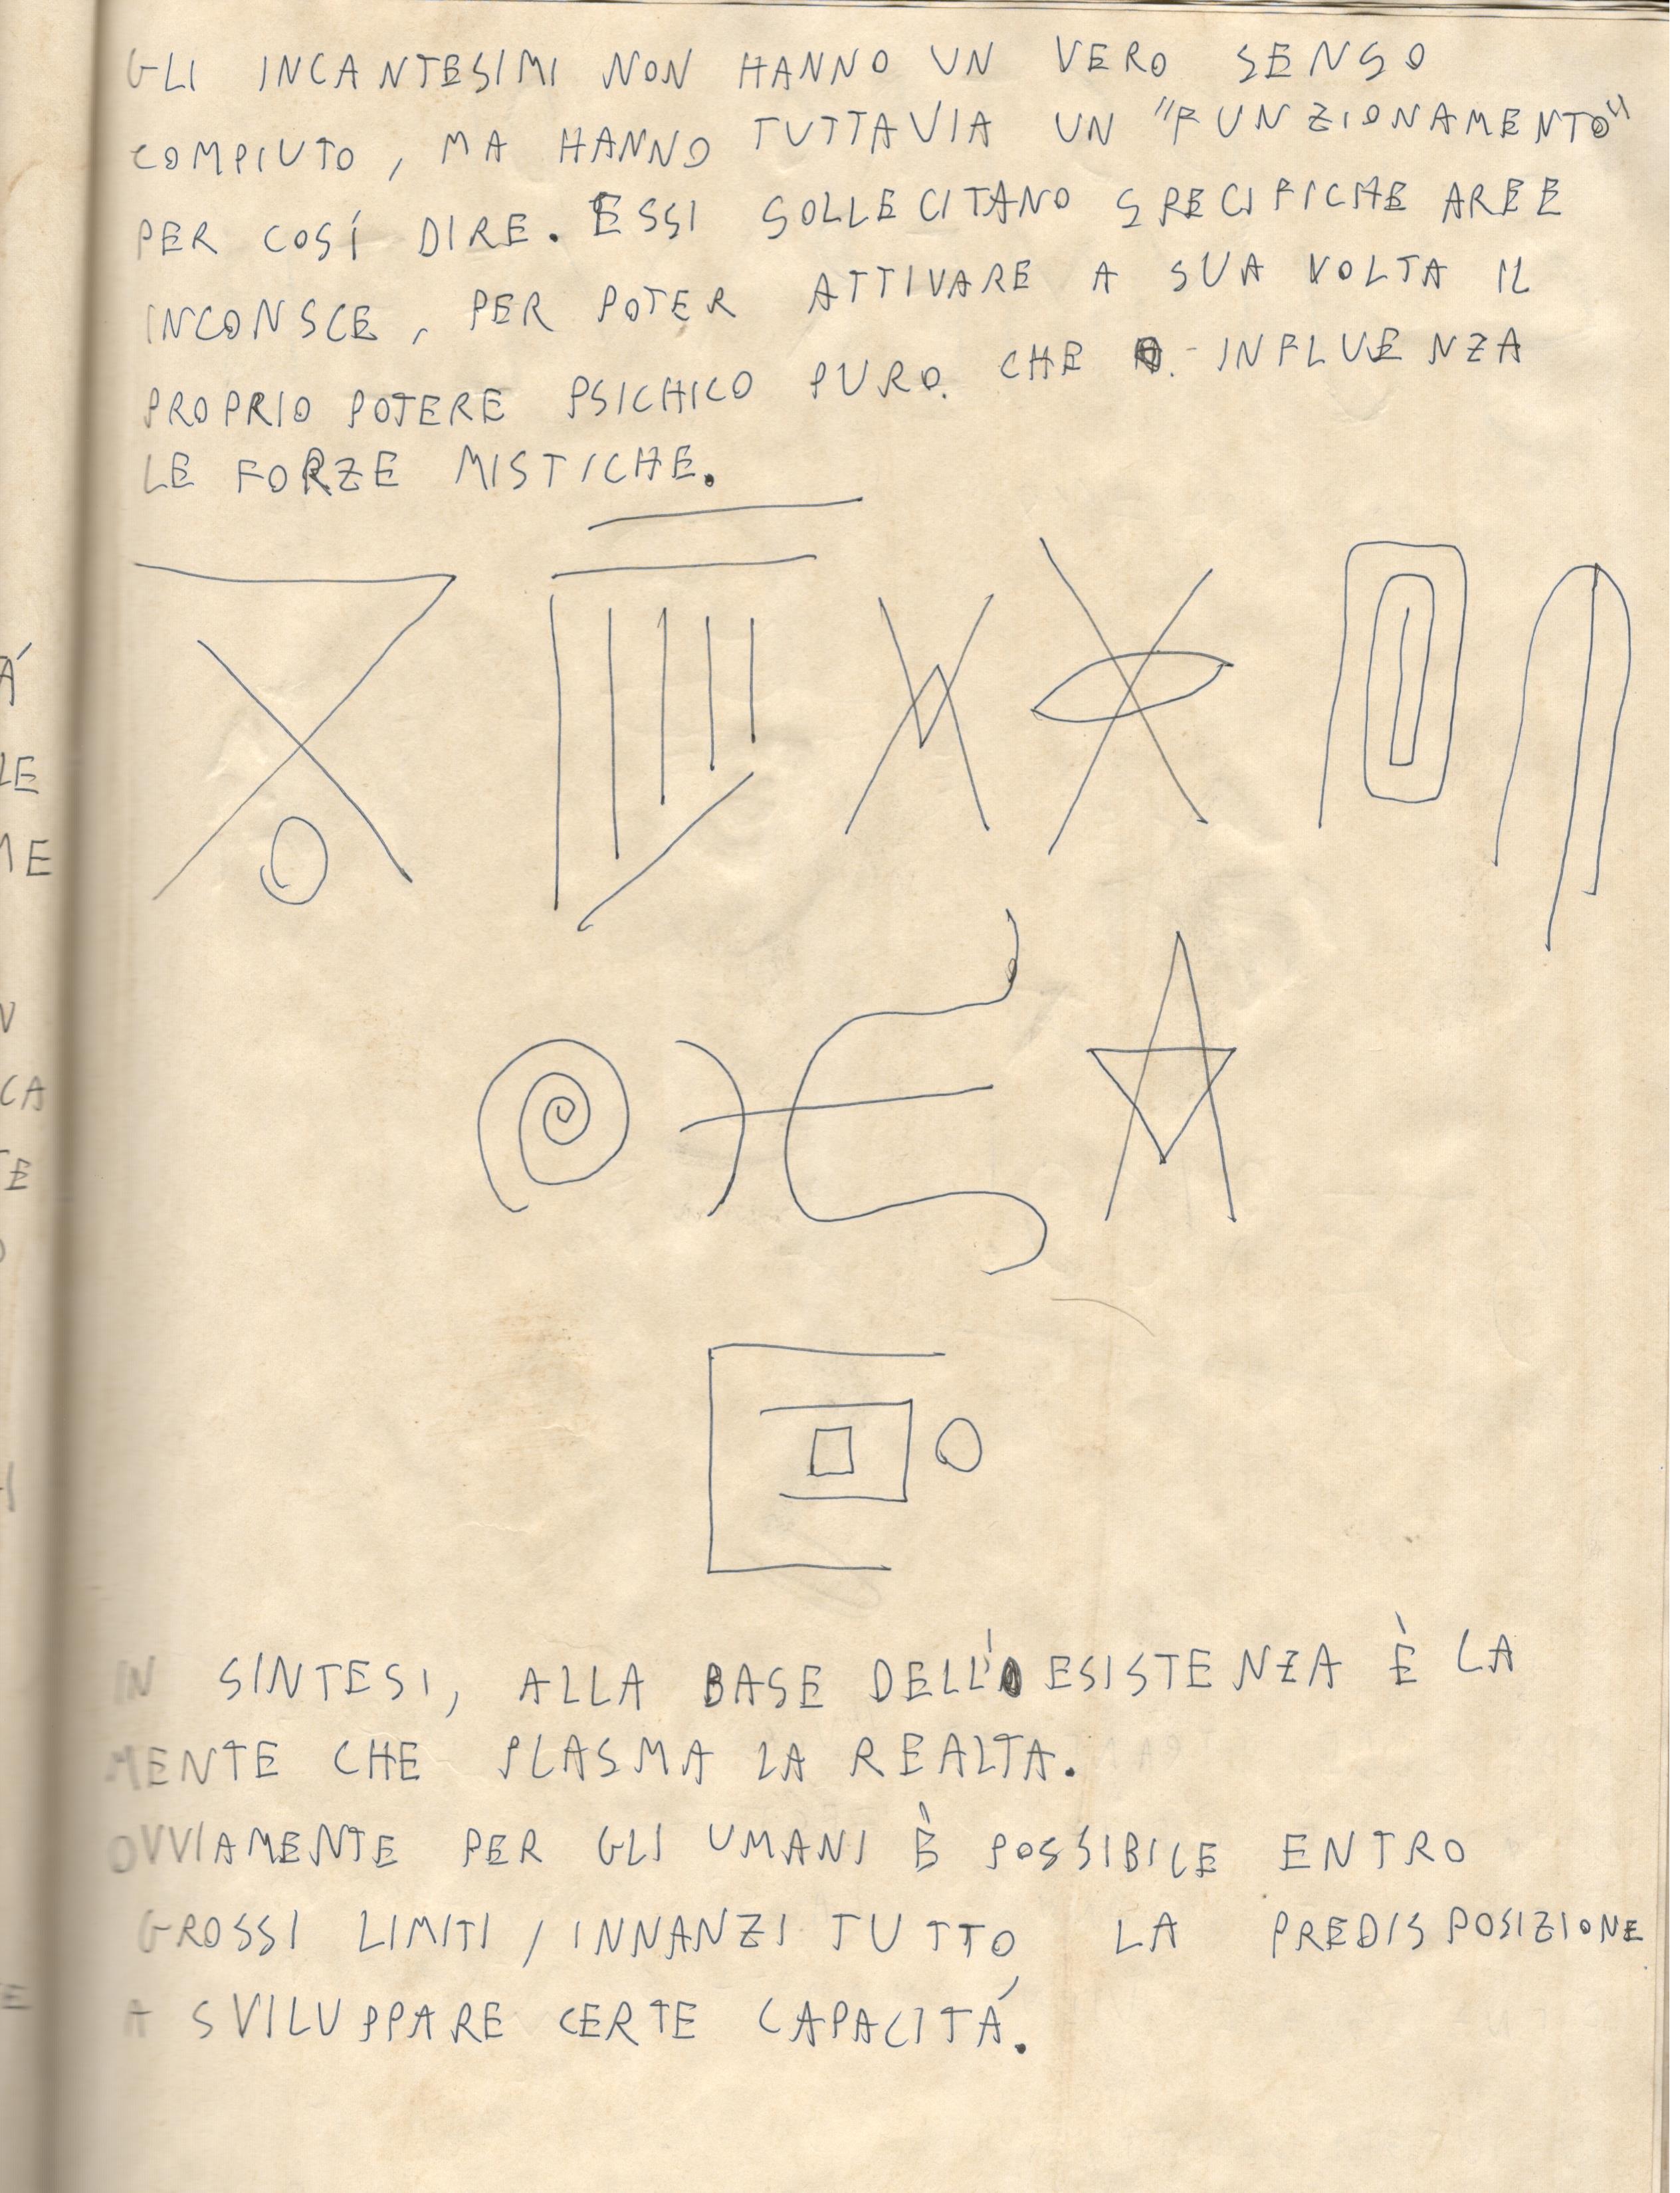 GLI INCANTESIMI NON HANNO UN VERO SENSO
COMPIUTO, MA HANNO TUTTAVIA UN "FUNZIONAMENTO"
PER COSÍ DIRE. ESSI SOLLECITANO SPECIFICHE AREE
INCONSCE, PER POTER ATTIVARE A SUA VOLTA IL
PROPRIO POTERE PSICHICO PURO. CHE INFLUENZA
LE FORZE MISTICHE.
IN SINTESI, ALLA BASE DELL'ESISTENZA È LA
MENTE CHE PLASMA LA REALTA.
OVVIAMENTE PER GLI UMANI È POSSIBILE ENTRO
GROSSI LIMITI, INNANZI TUTTO LA PREDISPOSIZIONE
A SVILUPPARE CERTE CAPACITÁ.